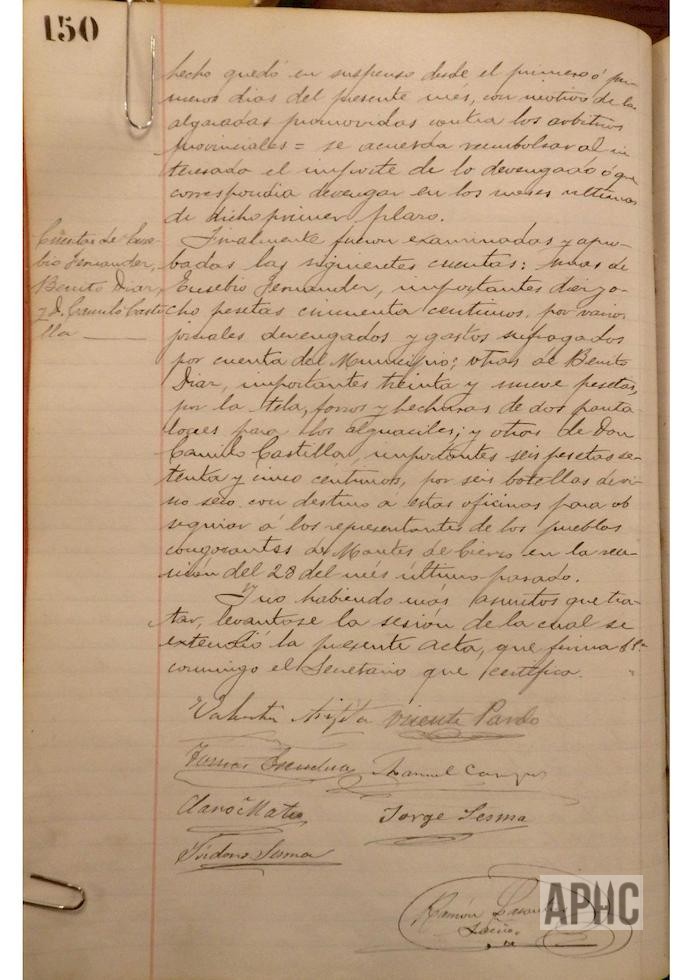 150
hecho quedó en suspenso desde el primero ó pri-
meros dias del presente més, con motivo de las
algaradas promovidas contra los arbitrios
provinciales = se acuerda reembolsar al in-
teresado el importe de lo devengado ó que
correspondia devengar en los meses ultimos
de dicho primer plazo.
Cuentas de Euse-
bio Fernandez,
Benito Diaz,
y D. Camilo Casti-
lla
Finalmente fueron examinadas y apro-
badas las siguientes cuentas: unas de
Eusebio Fernandez, importantes diez y o-
cho pesetas cincuenta centimos, por varios
jornales devengados y gastos sufragados
por cuenta del Municipio; otras de Benito
Diaz, importantes treinta y nueve pesetas,
por la tela, forros y hechuras de dos panta-
lones para los alguaciles; y otras de Don
Camilo Castilla, importantes seis pesetas se-
tenta y cinco céntimos, por seis botellas de vi-
no seco con destino á estas oficinas para ob-
sequiar á los representantes de los pueblos
congozantes de Montes de Cierzo en la reu-
nión del 28 del més último pasado.
Y no habiendo más asuntos que tra-
tar, levantose la sesión de la cual se
extendió la presente acta, que firma
conmigo el Secretario que certifico.
Valentin Vicente Pardo
Manuel Campos
Mateo Jorge Sesma
Isidoro Sesma
Ramón
APHC